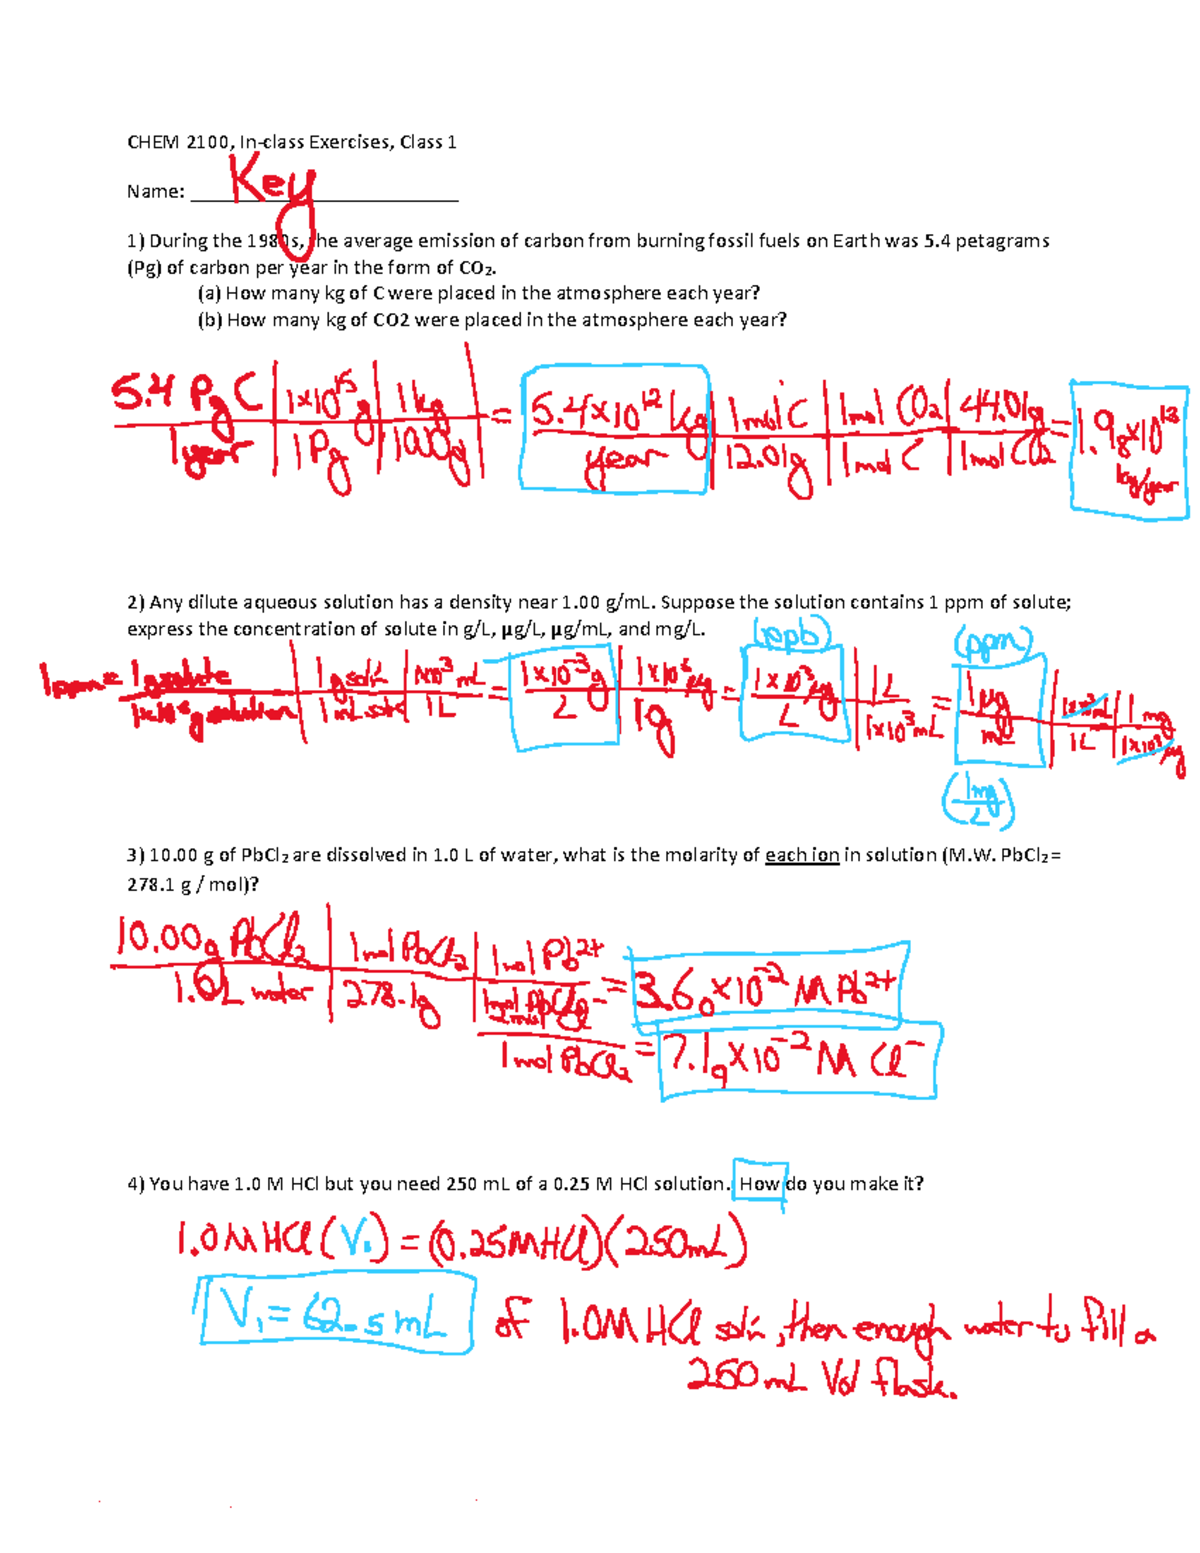 CHEM 2100, In-class Exercises, Class 1
Name: Key
1) During the 1980s, the average emission of carbon from burning fossil fuels on Earth was 5.4 petagrams
(Pg) of carbon per year in the form of CO₂.
(a) How many kg of C were placed in the atmosphere each year?
(b) How many kg of CO2 were placed in the atmosphere each year?
5.4 Pg C | 1×10¹⁵ g | 1 kg = 5.4×10¹² kg | 1 mol C | 1 mol CO₂ | 44.01g = 1.98×10¹³
1 year | 1 Pg | 1000g year | 12.01g | 1 mol C | 1 mol CO₂ kg/year
2) Any dilute aqueous solution has a density near 1.00 g/mL. Suppose the solution contains 1 ppm of solute;
express the concentration of solute in g/L, µg/L, µg/mL, and mg/L.
(ppb) (ppm)
1 ppm = 1 g solute | 1 g soln | 1×10³ mL = 1×10⁻³ g | 1×10⁶ µg = 1×10³ µg | 1 L = 1 µg | 1×10³ mL | 1 mg
1×10⁶ g solution | 1 mL soln | 1 L L | 1 g L | 1×10³ mL mL | 1 L | 1×10³ µg
(1 mg/L)
3) 10.00 g of PbCl₂ are dissolved in 1.0 L of water, what is the molarity of each ion in solution (M.W. PbCl₂=
278.1 g / mol)?
10.00g PbCl₂ | 1 mol PbCl₂ | 1 mol Pb²⁺ = 3.6₀×10⁻² M Pb²⁺
1.0 L water | 278.1g | 1 mol PbCl₂
2 mol Cl⁻
1 mol PbCl₂ = 7.1₉×10⁻² M Cl⁻
4) You have 1.0 M HCl but you need 250 mL of a 0.25 M HCl solution. How do you make it?
1.0M HCl (V₁) = (0.25M HCl)(250mL)
V₁ = 62.5 mL of 1.0M HCl soln, then enough water to fill a
250 mL Vol flask.